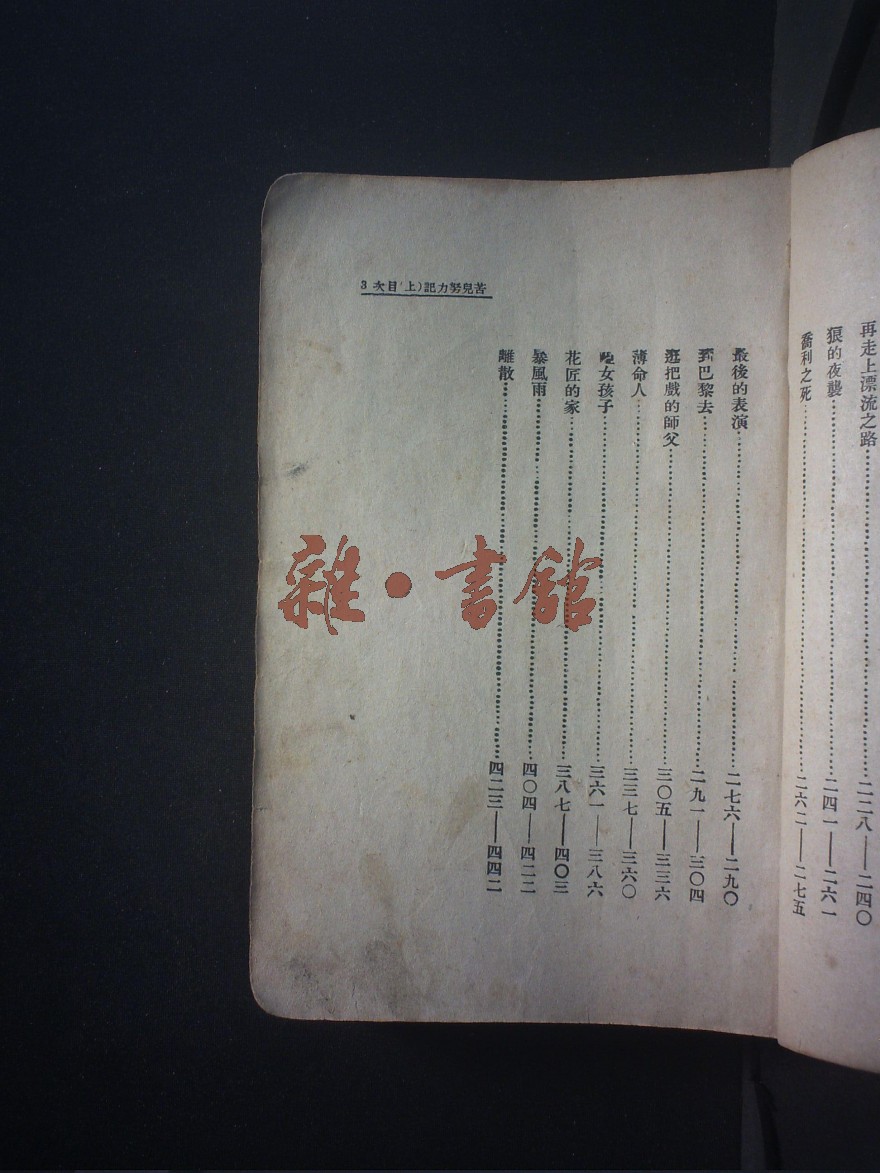 再走上漂流之路……二二八——二四〇
狼的夜襲……二四一——二六一
喬利之死……二六二——二七五
苦兒努力記(上)目次 3
最後的表演……二七六——二九〇
到巴黎去……二九一——三〇四
逛把戲的師父……三〇五——三三六
薄命人……三三七——三六〇
啞女孩子……三六一——三八六
花匠的家……三八七——四〇三
暴風雨……四〇四——四二二
離散……四二三——四四二
雜·書館